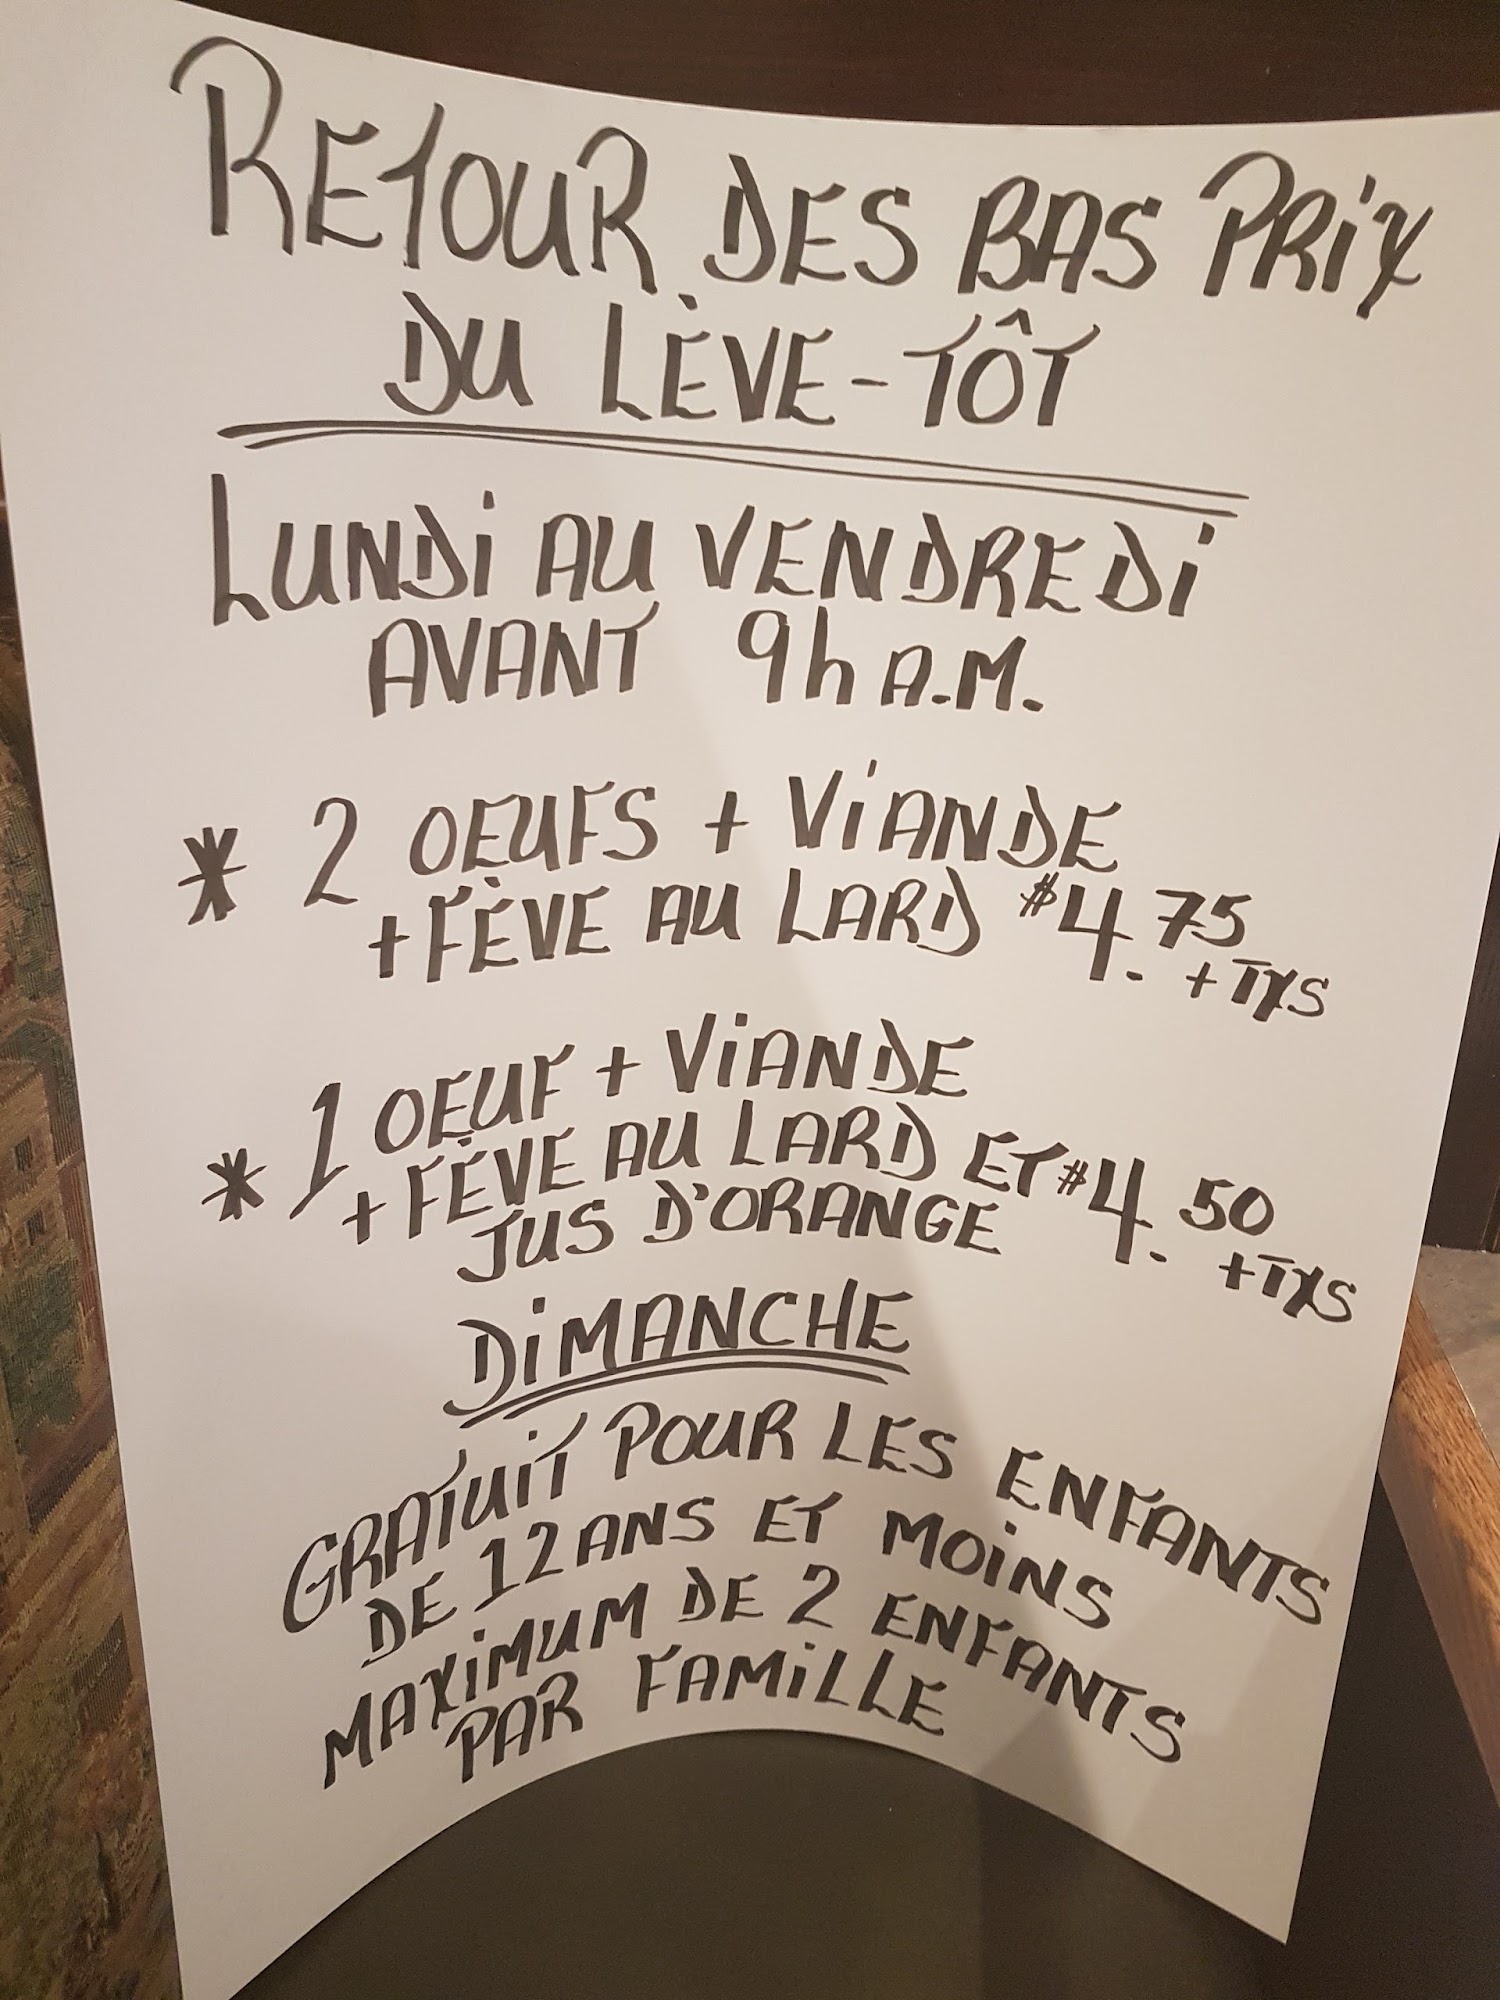 RETOUR DES BAS PRiX
DU LÈVE-TÔT
LUNDi AU VENDREDi
AVANT 9h A.M.
* 2 OEUFS + ViANDE
+ FÈVE AU LARD $4.75
+ TXS
* 1 OEUF + ViANDE
+ FÈVE AU LARD ET $4.50
JUS D'ORANGE + TXS
DiMANCHE
GRATUiT POUR LES ENFANTS
DE 12 ANS ET MOiNS
MAXiMUM DE 2 ENFANTS
PAR FAMiLLE